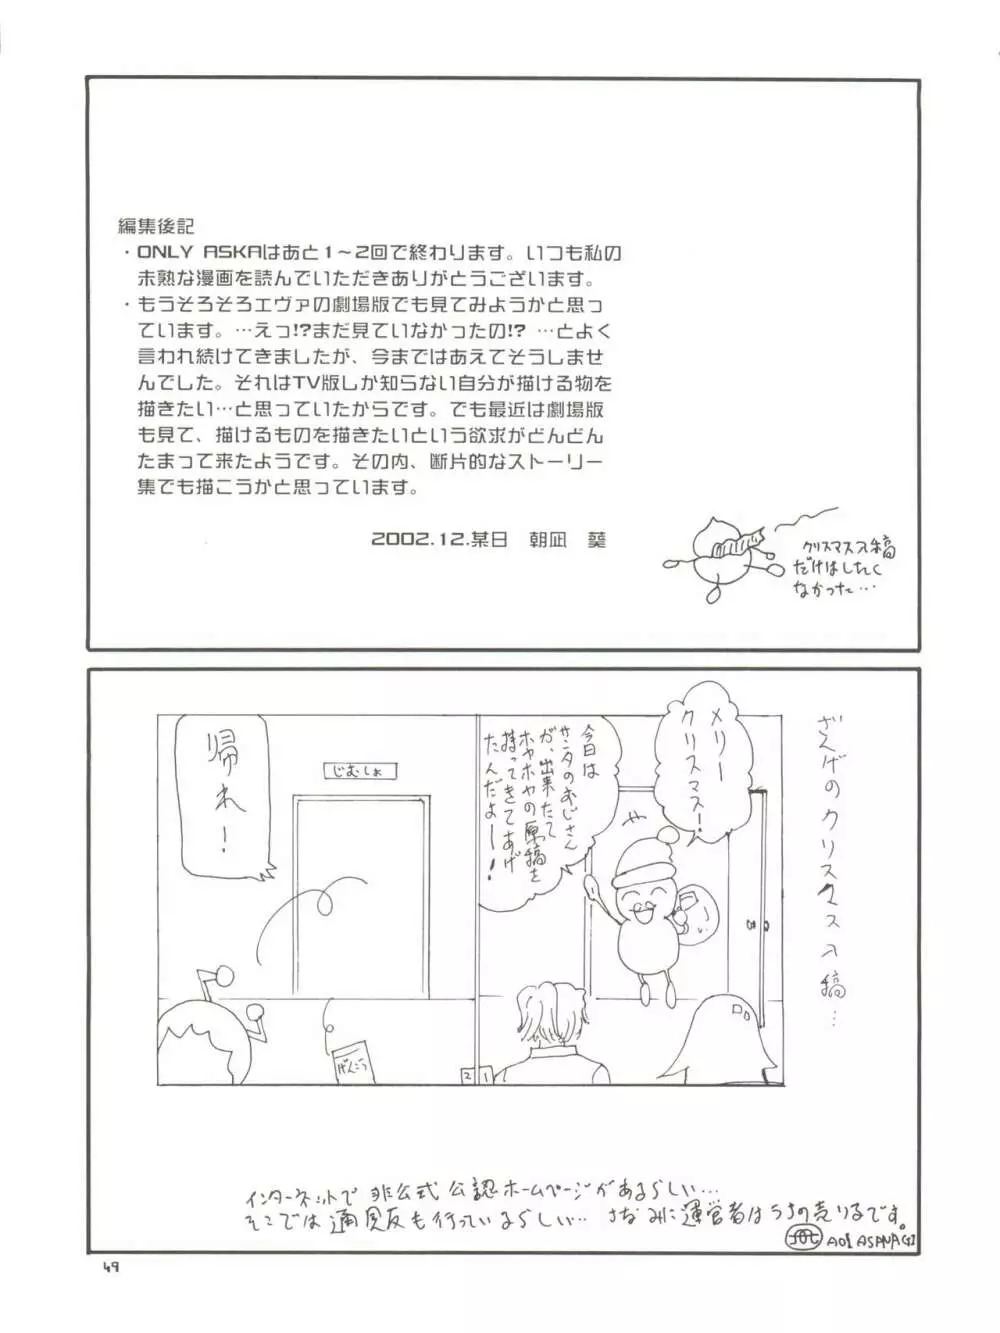 編集後記
・ONLY ASKAはあと1〜2回で終わります。いつも私の
未熟な漫画を読んでいただきありがとうございます。
・もうそろそろエヴァの劇場版でも見てみようかと思っ
ています。…えっ!?まだ見ていなかったの!? …とよく
言われ続けてきましたが、今まではあえてそうしませ
んでした。それはTV版しか知らない自分が描ける物を
描きたい…と思っていたからです。でも最近は劇場版
も見て、描けるものを描きたいという欲求がどんどん
たまって来たようです。その内、断片的なストーリー
集でも描こうかと思っています。
2002.12.某日 朝凪 葵
クリスマス入稿
だけはしたく
なかった…
ざんげのクリスマス入稿…
メリー
クリスマス!
今日は
サンタのおじさん
が、出来たて
ホヤホヤの原稿を
持ってきてあげ
たんだよー!
1
じむしょ
帰れ!
げんこう
2
インターネットで非公式公認ホームページがあるらしい…
そこでは通販も行っているらしい… ちなみに運営者はうちの売り子です。
AOI ASANAGI
49